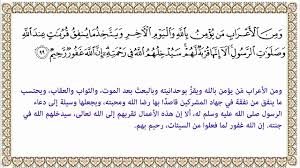 وَمِنَ ٱلۡأَعۡرَابِ مَن يُؤۡمِنُ بِٱللَّهِ وَٱلۡيَوۡمِ ٱلۡأٓخِرِ وَيَتَّخِذُ مَا يُنفِقُ قُرُبَٰتٍ عِندَ ٱللَّهِ
وَصَلَوَٰتِ ٱلرَّسُولِۚ أَلَآ إِنَّهَا قُرۡبَةٞ لَّهُمۡۚ سَيُدۡخِلُهُمُ ٱللَّهُ فِي رَحۡمَتِهِۦٓۚ إِنَّ ٱللَّهَ غَفُورٞ رَّحِيمٞ ٩٩
ومن الأعراب مَن يؤمن بالله ويقرُّ بوحدانيته وبالبعث بعد الموت، والثواب والعقاب، ويحتسب
ما ينفق من نفقة في جهاد المشركين قاصدًا بها رضا الله ومحبته، ويجعلها وسيلة إلى دعاء
الرسول صلى الله عليه وسلم له، ألا إن هذه الأعمال تقربهم إلى الله تعالى، سيدخلهم الله في
جنته. إن الله غفور لما فعلوا من السيئات، رحيم بهم.